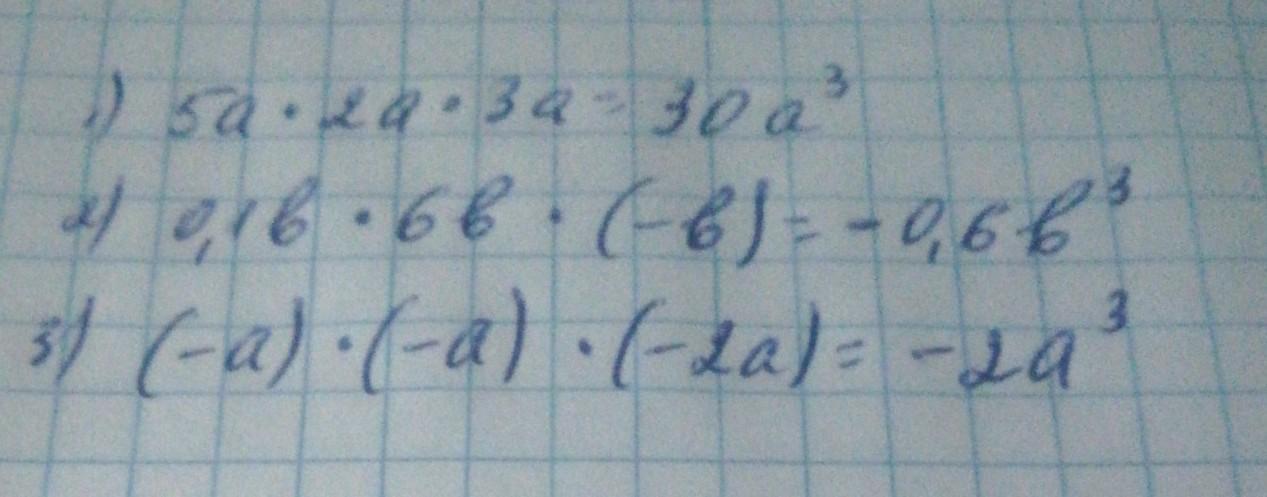 1) 5a · 2a · 3a = 30a³
2) 0,1b · 6b · (-b) = -0,6b³
3) (-a) · (-a) · (-2a) = -2a³